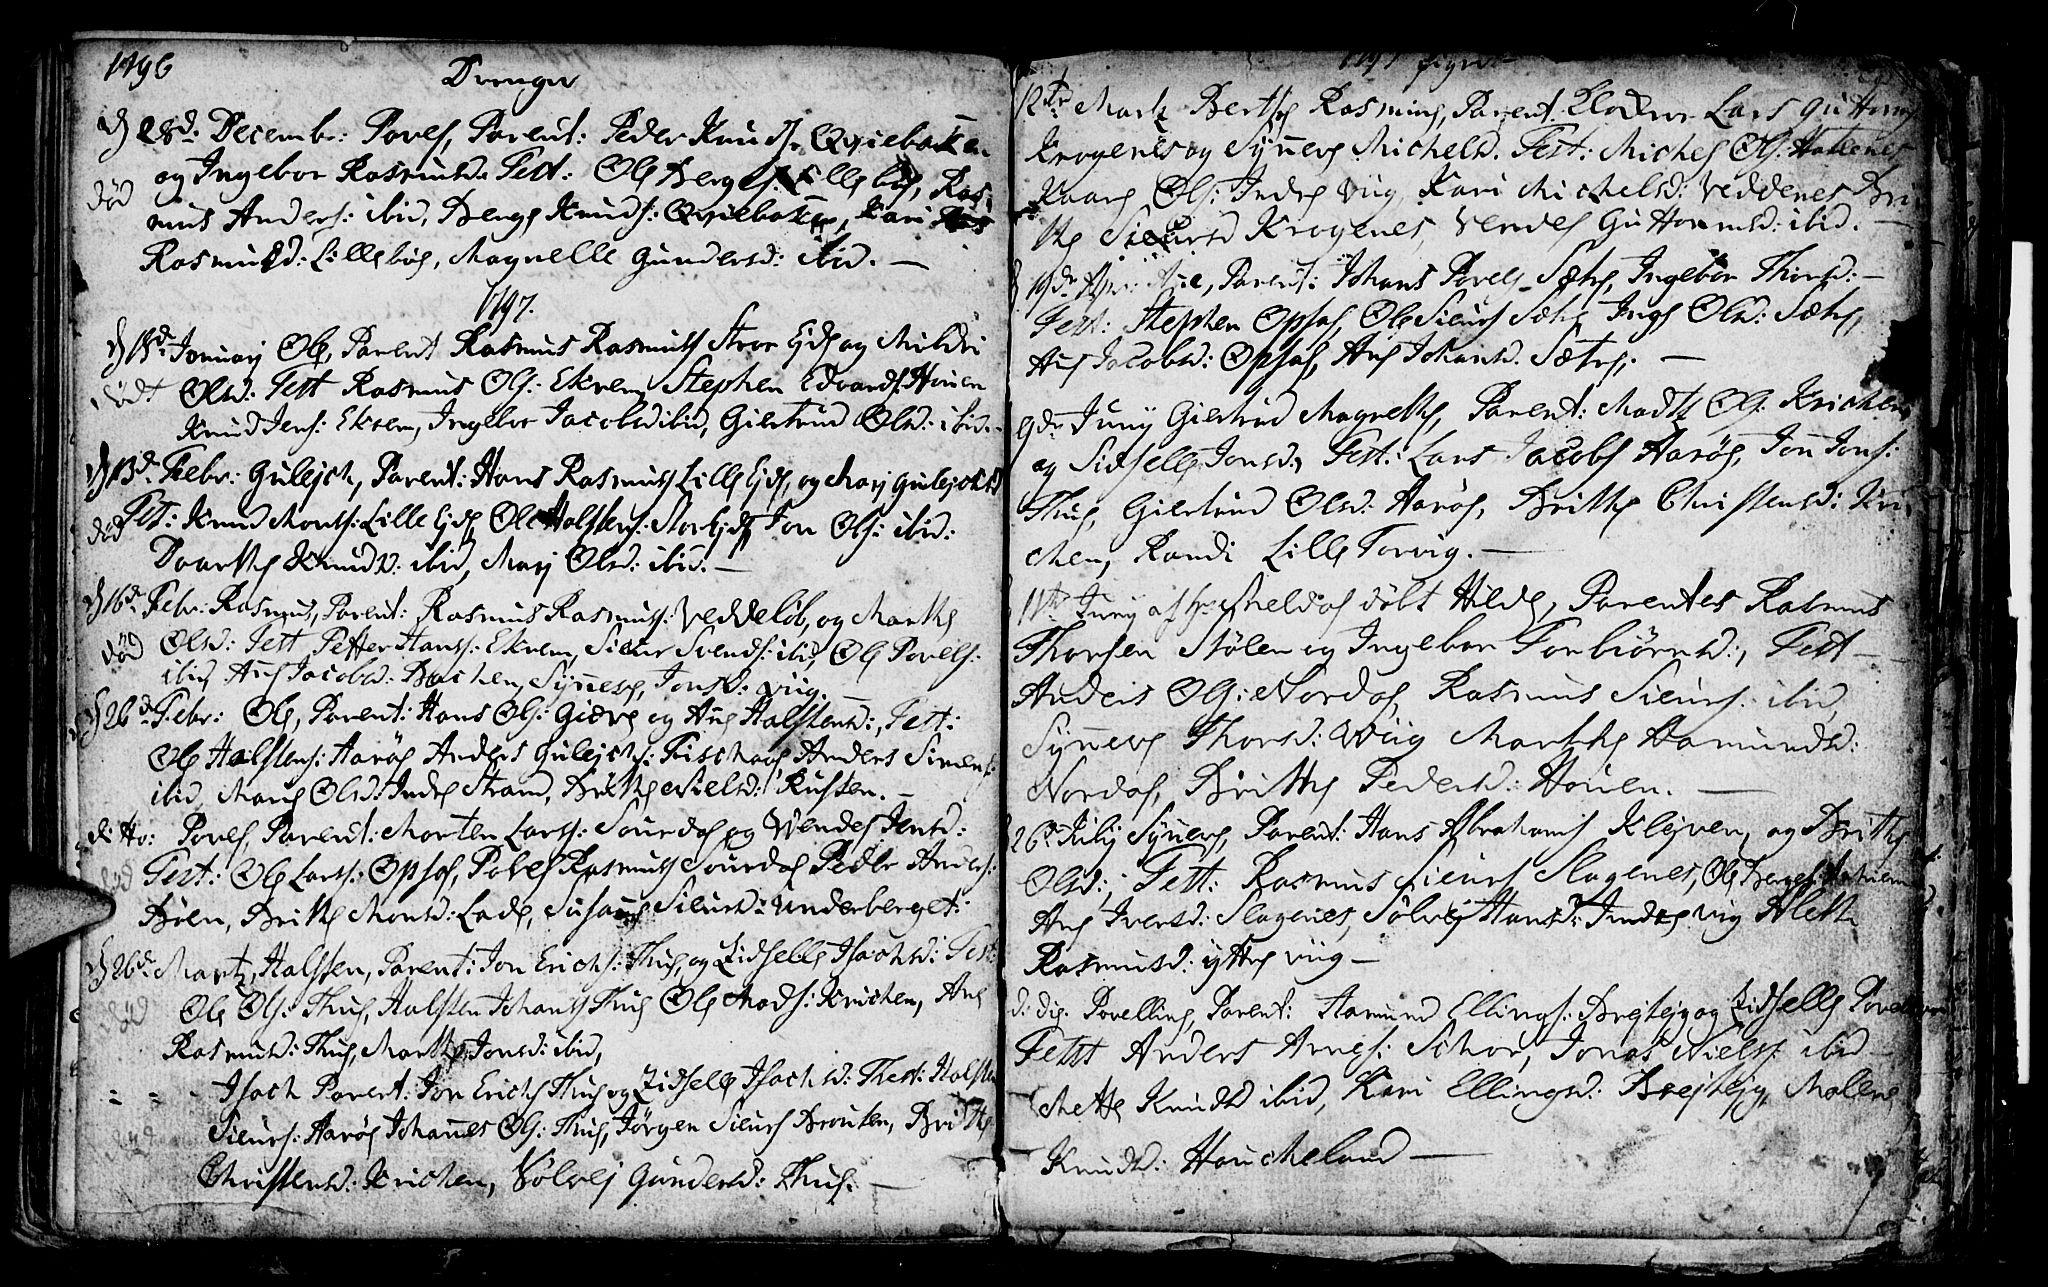 1796 Drenge
d 28d. Decembr: Povel, Parent: Peder Knuds.
og Ingebor Rasmusd. Test: Ole Berges. Lillebøe, Ras-
død
mus Anders: ibid, Berge Knuds: Kari
Rasmusd: Lillebøe, Magnelle Gundersd: ibid. —
1797.
d 1d. Januarj Ole, Parent Rasmus Rasmuss Stor Ejde og Mildri
Olsd: Test Rasmus Ols: Ekrem, Stephen Edvards. Houen
Knud Jens: Ekrem, Ingebor Jacobsd ibid, Giertrud Olsd: ibid.-
d 13d. Febr: Gulejch, Parent: Hans Rasmuss Lille Ejde, og Marj Gulejchsd
død Test: Knud Mons: Lille Ejde Ole Halstens: Stor Ejde Jon Ols: ibid:
Daarthe Knudsd: ibid, Marj Olsd: ibid. —
d 16d Febr: Rasmus, Parent: Rasmus Rasmuss: Veddeløb, og Marthe
død Olsd: Test Petter Hans: Ekrem, Siur Svends: ibid Ole Povels:
ibid Ane Jacobsd: Synneve Jonsd: Viig. —
d 26d. Febr: Ole, Parent: Hans Ols: Giære og Ane Halstensd:, Test:
Ole Halstens: Harøe Anders Gulejchs: Anders Simens:
ibid, Mari Olsd: Indre Strand, Brithe Nielsd: Rusten. —
d: Ho: Povel, Parent: Morten Lars: Sourdal og Vendel Jensd:
Test: Ole Lars: Opsal, Povel Rasmuss Sourdal Peder Anders:
Bøen, Brithe Monsd: Lade, Susanne Siursd: Underberget:
d 26d. Martz, Halsten, Parent: Jon Erichs: Thue, og Zidselle Isachsd: Test:
Ole Ols: Thue, Halsten Johans Thue Ole Mads: Krichen, Ane
Rasmusd: Thue, Marthe Jonsd: ibid,
= = - Isach Parent: Jon Erichs Thue og Zidselle Isachsd: Test: Halsten
Siurs: Harøe Johannes Ols: Thue, Jørgen Siurs Brousen, Brithe
Christensd: Krichen, Sølvej Gundersd: Thue. —
1797 Piger
12te Martz Berthe Rasmine, Parent: Lars Guttorms
Krogenes og Synneve Michelsd. Test: Michel Ols:
Kaare Ols: Indre Viig, Kari Michelsd: Veddenes Bri-
the Siursd Krogenes, Vendel Guttormsd: ibid. —
19de Parent: Johans Povels Sætre, Ingebor Thorsd: —
Test: Stephen Opsal, Ole Siurs Sætre Inge Olsd: Sætre,
Ane Jacobsd: Opsal, Ane Johansd. Sætre; —
9de Junij Giertrud Magrethe, Parent: Mads Ols: Krichen,
og Sidselle Jonsd, Test: Lars Jacobs Harøe, Jon Jons:
Thue, Giertrud Olsd: Harøe, Brithe Christensd: Kri-
chen, Randi Lille Torvig. —
11te Junij af døbt Hilde, Parentes Rasmus
Thorsen Stølen og Ingebor Torbiørnsd:, Test —
Anders Ols: Nordal, Rasmus Siurs: ibid,
Synneve Thorsd: Viig Marthe Aamundsd:
Nordal, Brithe Pedersd: Houen. —
26d. Julij Synneve, Parent: Hans Abrahams Klejven, og Brithe
Olsd:, Test: Rasmus Siurs Slagenes, Ole Berges:
Ane Iversd: Slagenes, Sølvej Hansd: Indre Viig Aleth
Rasmusd: Ytthe Viig —
d: die. Povelline, Parent: Aamund Ellings: Brejtejg og Zidselle
Testt Anders Arnes: Schor, Jonas Niels: ibid —
Mette Knudsd ibid, Kari Ellingsd: Brejtejg, Malene
— Knudsd: Houcheland —